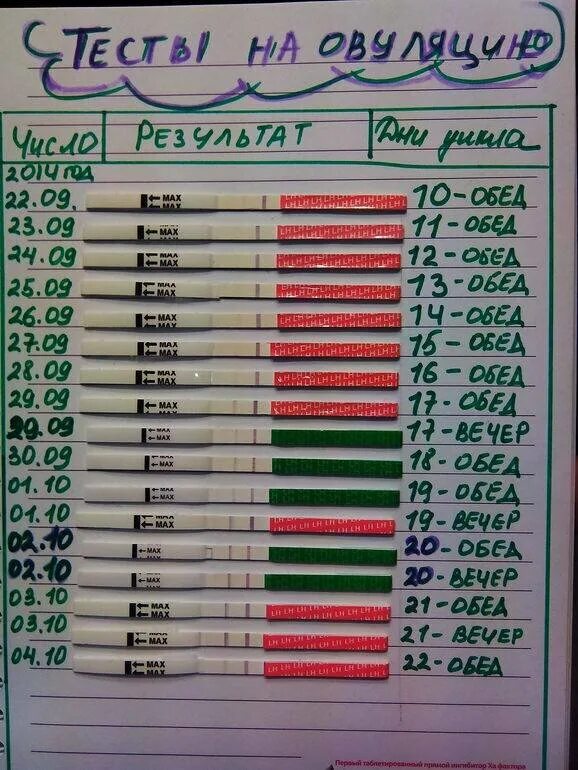 Тесты на овуляцию
Число Результат Дни цикла
2014 год
22.09. MAX LH LH LH LH LH 10-ОБЕД
23.09 MAX LH LH LH LH LH 11-ОБЕД
24.09 MAX LH LH LH LH LH 12-ОБЕД
25.09 MAX LH LH LH LH LH 13-ОБЕД
26.09 MAX LH LH LH LH LH 14-ОБЕД
27.09 MAX LH LH LH LH LH 15-ОБЕД
28.09 MAX LH LH LH LH LH 16-ОБЕД
29.09 MAX LH LH LH LH LH 17-ОБЕД
29.09 MAX 17-ВЕЧЕР
30.09 MAX 18-ОБЕД
01.10 MAX 19-ОБЕД
01.10 MAX LH LH LH LH LH 19-ВЕЧЕР
02.10 MAX 20-ОБЕД
02.10 MAX 20-ВЕЧЕР
03.10 MAX LH LH LH LH LH 21-ОБЕД
03.10 MAX LH LH LH LH LH 21-ВЕЧЕР
04.10 MAX LH LH LH LH LH 22-ОБЕД
Первый таблетированный прямой ингибитор Ха фактора